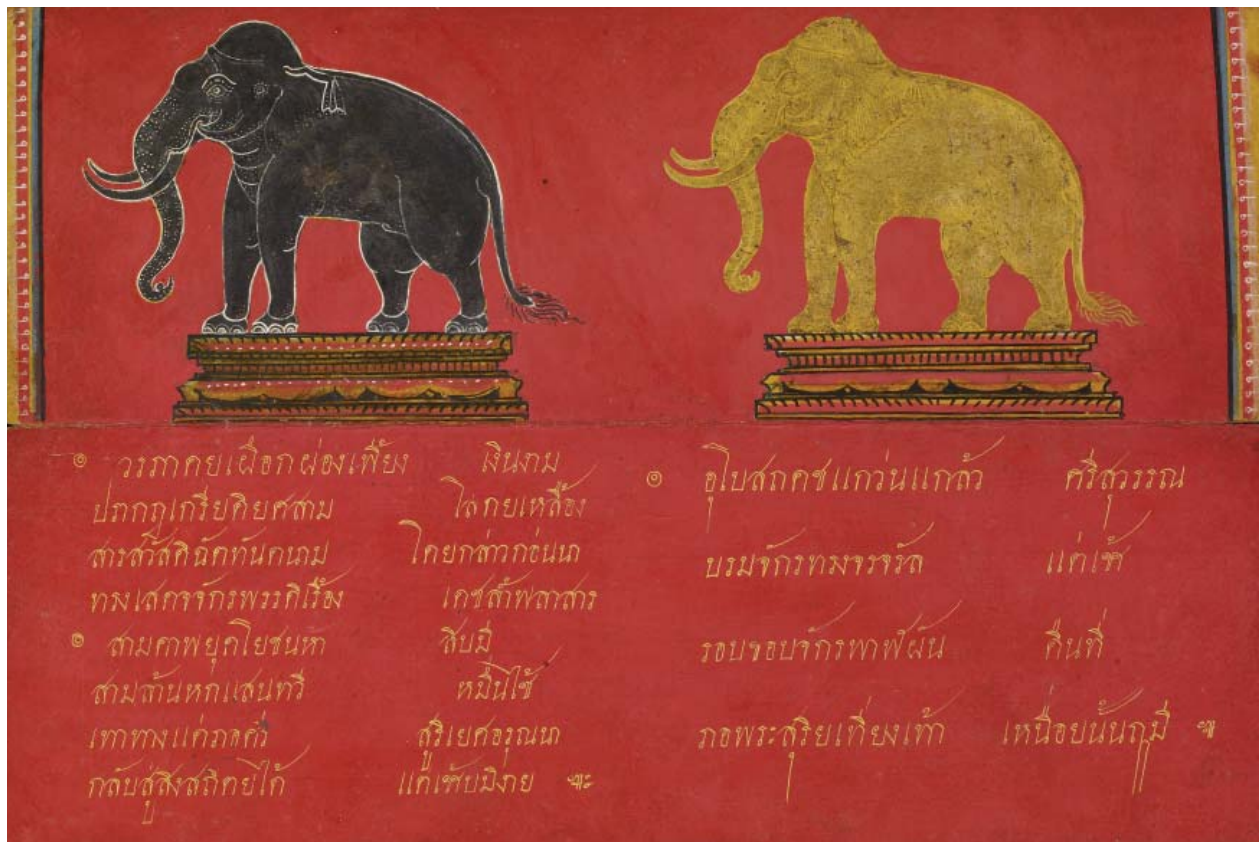 ๏ วรกายเผือกผ่องเพี้ยง เงินงาม
โสภยเหลื้อง
สารสวัสดิฉัททันตนาม โดยกล่าวก่อนนา
ทรงเสดจจักรพรรดิเรื้อง เดชล้ำพลาสาร
๏ สามคาพยุตโยชนหา สิบมี
สามล้านหกแสนทวี หมื่นไซ้
สูริเยศอรุณนา
กลับสู่สิงสถิตยได้ แต่เช้าบมิงาย ๚ะ
๏ อุโบสถคชแกว่นแกล้ว ศรีสุวรรณ
บรมจักรทรงจรจรัล แต่เช้า
รอบขอบจักรพาฬผัน คืนที่
ภอพระสุริยเที่ยงเท้า เหนื่อยนั้นฤๅมี ๚